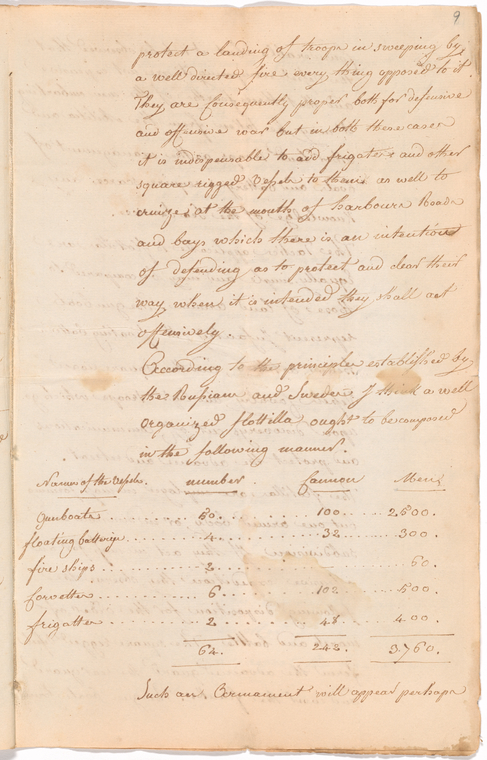 9
protect a landing of troops in sweeping by
a well directed fire every thing opposed to it.
They are Consequently proper both for defensive
and offensive war but in both these cases
it is indispensable to add frigates and other
square rigged Vessels to them as well to
cruize at the mouth of harbours Roads
and bays which there is an intention
of defending as to protect and clear their
way when it is intended they shall act
offensively.
According to the principles established by
the Russians and Swedes I think a well
organized flottilla ought to be composed
in the following manner.
Names of the Vessels. number. Cannon Men
Gunboats 50 100 2.500.
floating batterys 4 32 300.
fire ships 2 60.
Corvettes 6 102 500.
frigattes 2 48 400.
64. 242 3.760.
Such an Armament will appear perhaps